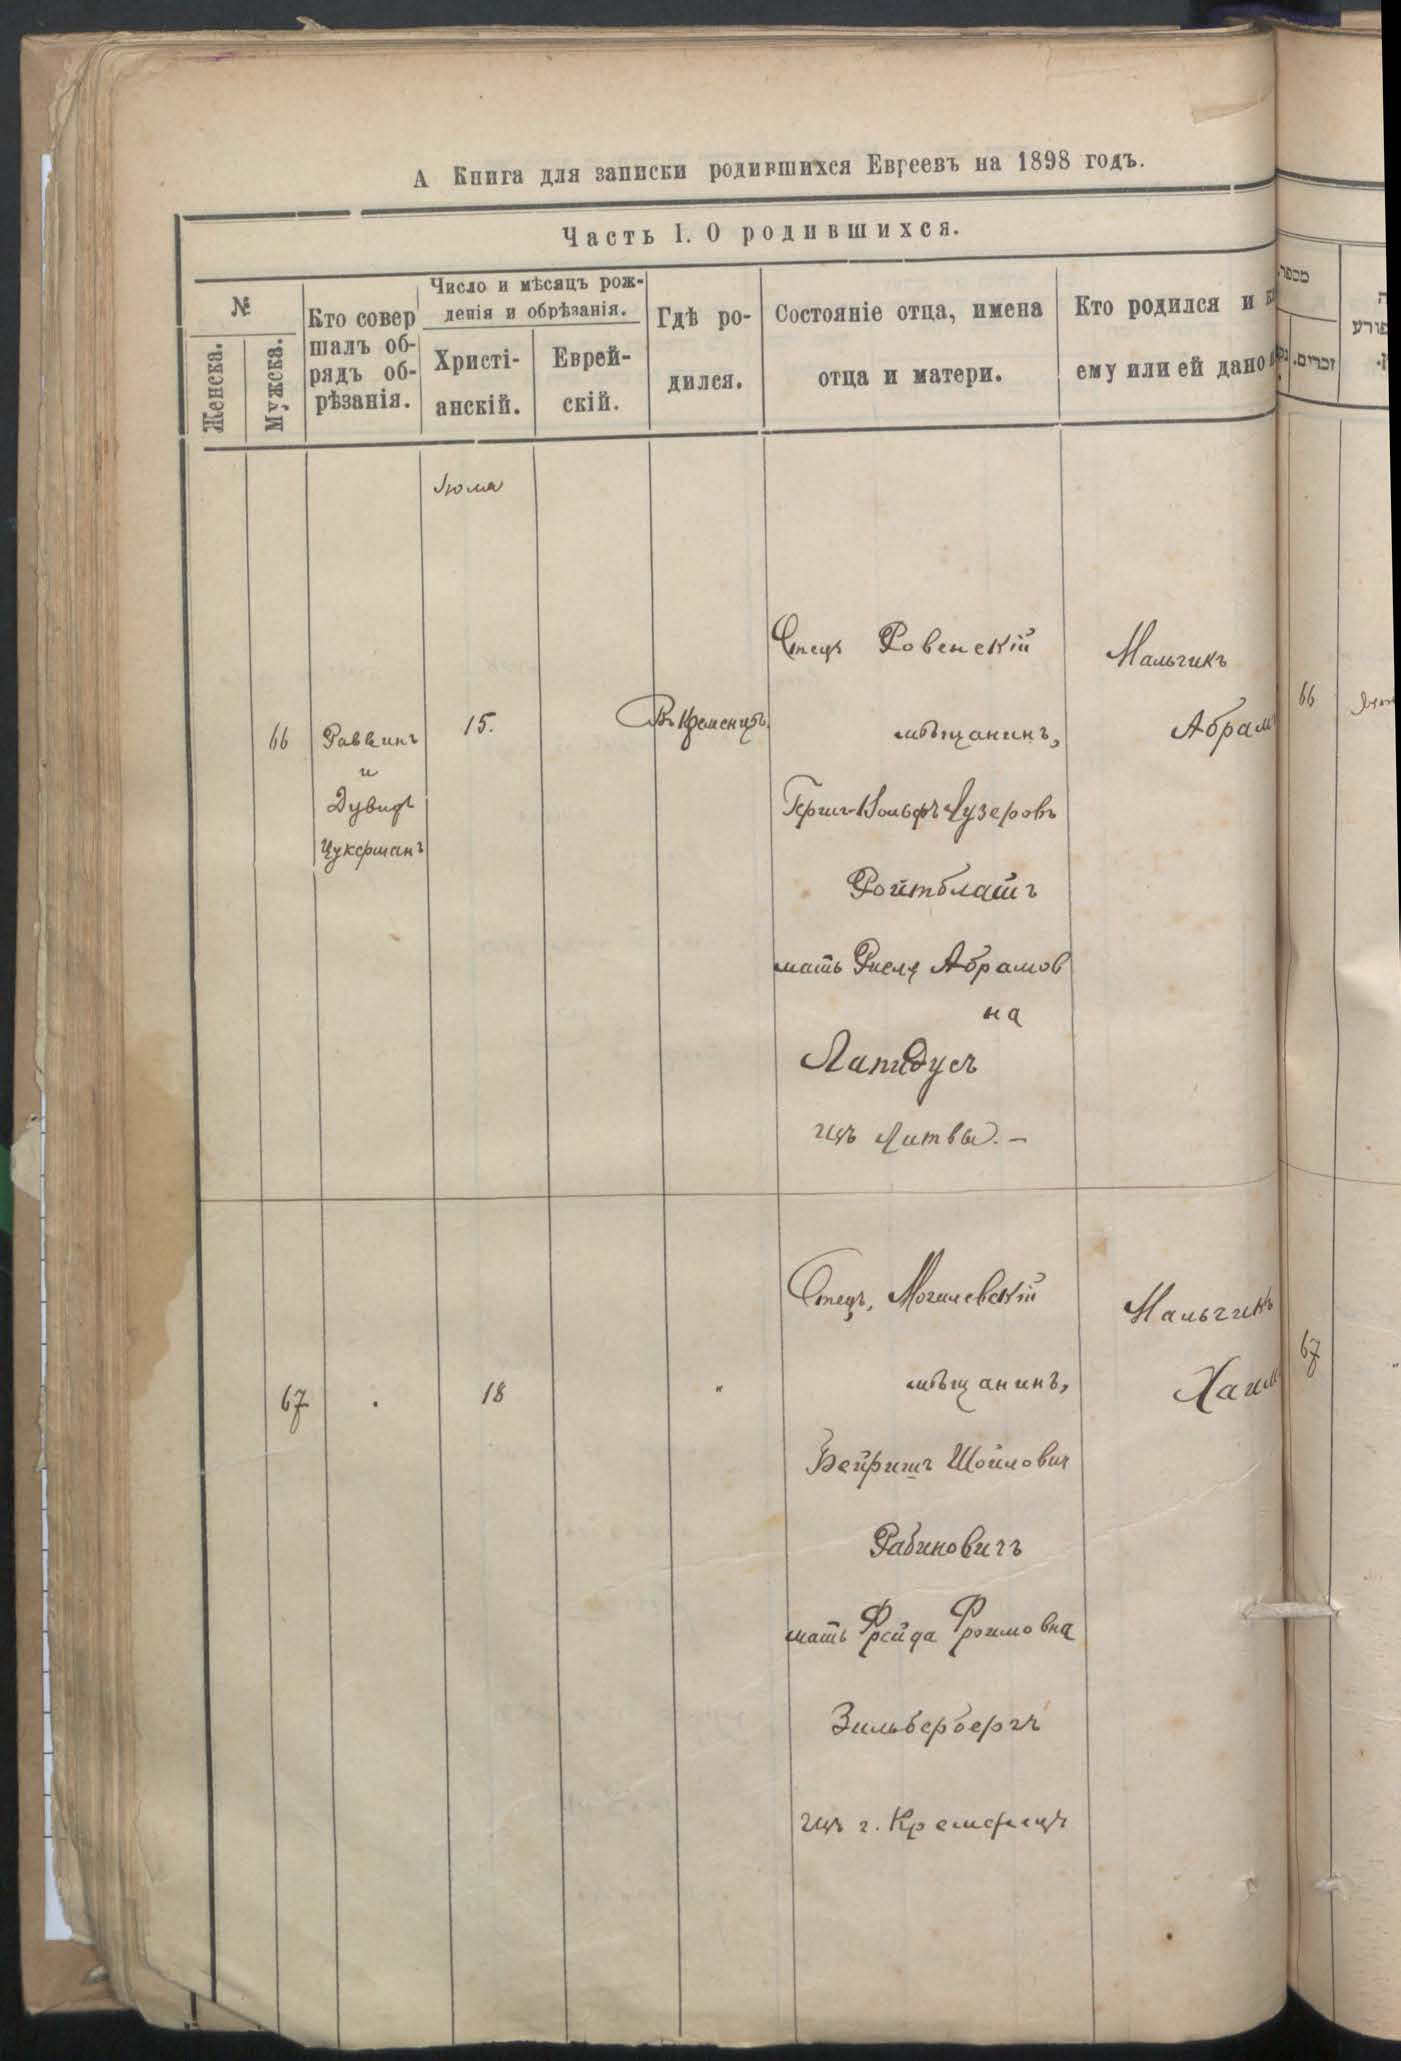 А Книга для записки родившихся Евреевъ на 1898 годъ.
Часть I. О родившихся.
№
Женска.
Мужска.
Кто совер
шалъ об-
рядъ об-
рѣзанія.
Число и мѣсяцъ рож-
денія и обрѣзанія.
Христі-
анскій.
Еврей-
скій.
Гдѣ ро-
дился.
Состояніе отца, имена
отца и матери.
Кто родился и
ему или ей дано
Іюля
66
Раввинъ
и
Дувидъ
Цукерманъ
15.
Въ Кременцѣ.
Отецъ Ровенскій
мѣщанинъ,
Гершъ-Вольфъ Лузеровъ
Ройтблатъ
мать Рися Абрамов
на
Лапидусъ
изъ Литвы. –
Мальчикъ
Абрам
67
18
"
Отецъ, Могилевскій
мѣщанинъ,
Бейришъ Шоилович
Рабиновичъ
мать Фрейда Фроимовна
Зильбербергъ
изъ г. Кременцъ
Мальчикъ
Хаим
מספר
זכרים.
66
67